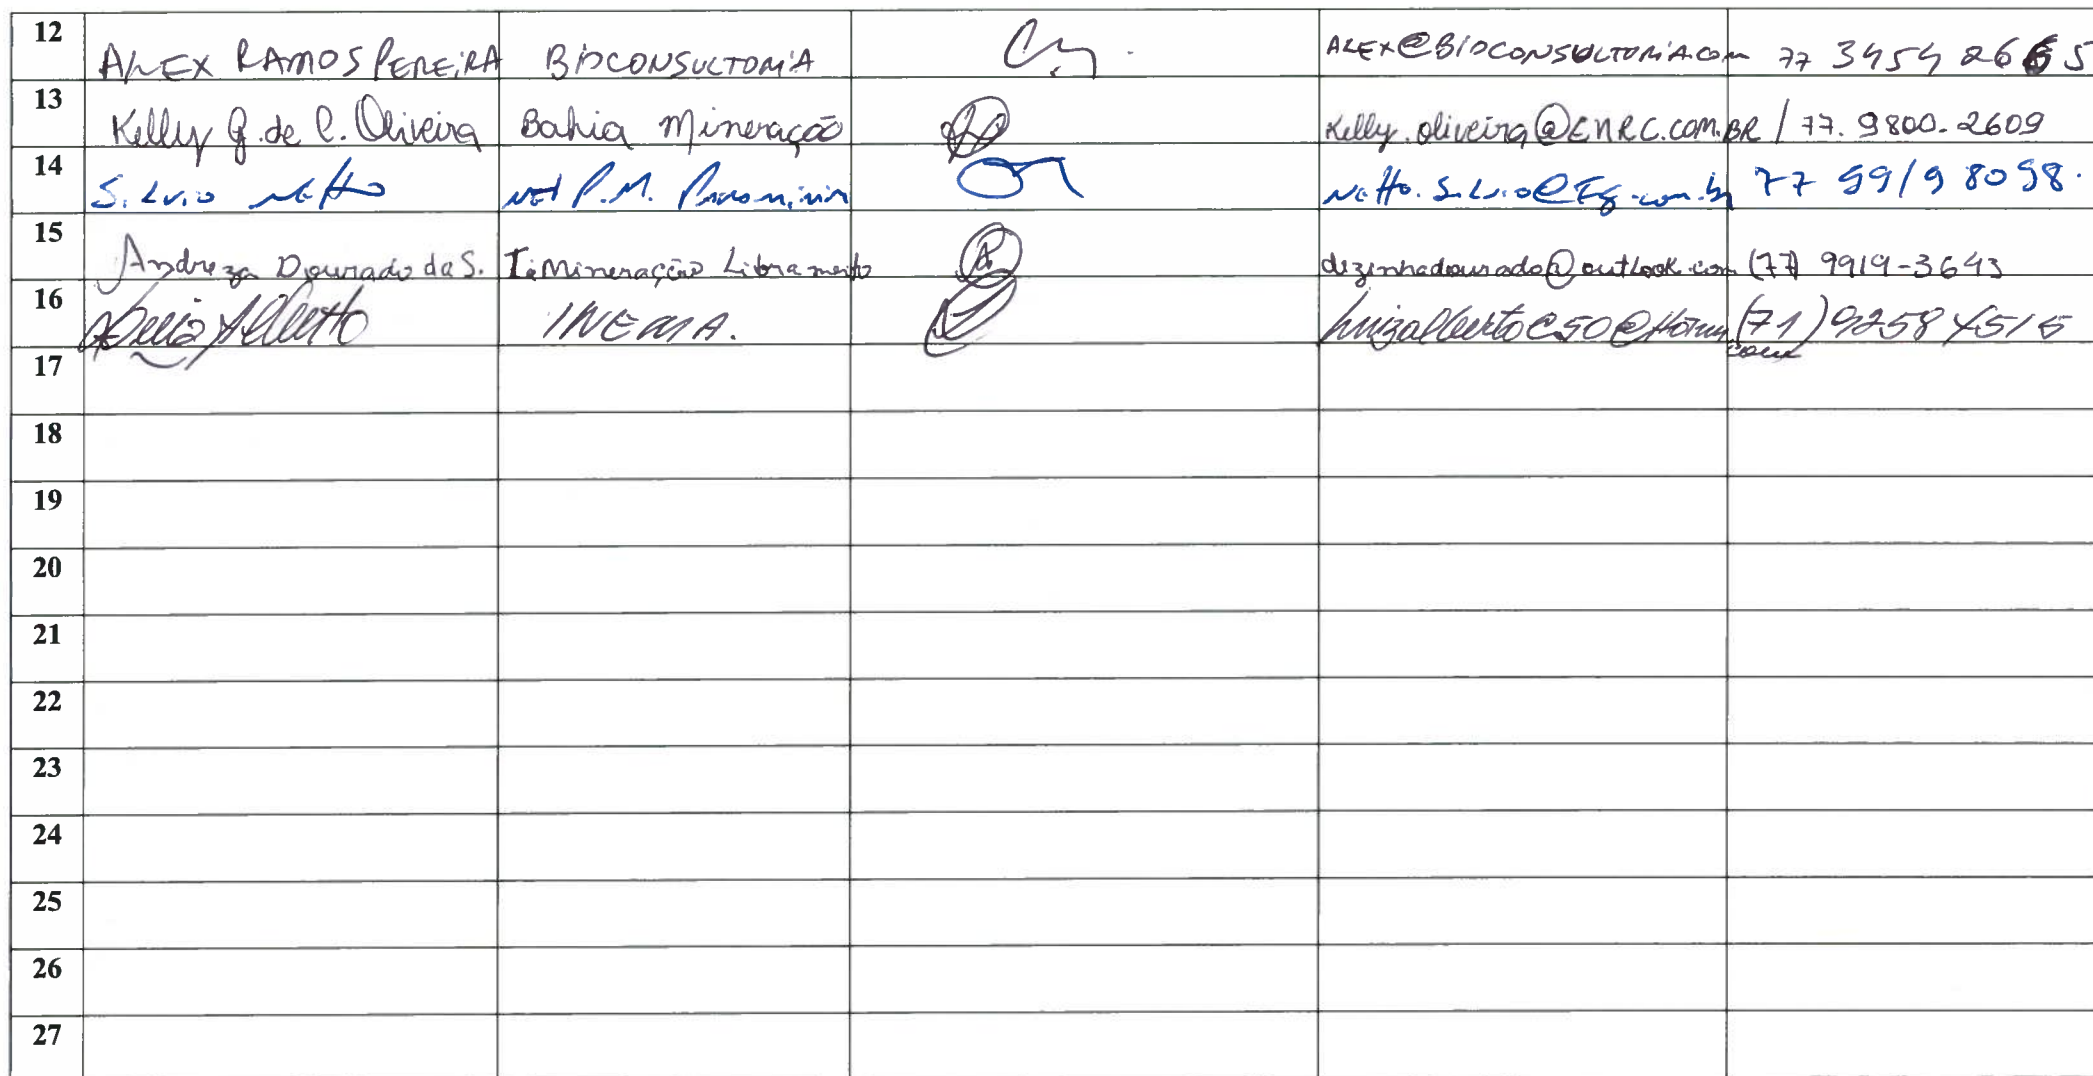 12 ALEX RAMOS PEREIRA BIOCONSULTORIA ALEX@BIOCONSULTORIA.COM 77 3454 2665
13 Kelly G. de C. Oliveira Bahia Mineração Kelly.oliveira@ENRC.COM.BR / 77. 9800-2609
14 Silvio Netto P.M. 77 99198098.
15 Andreza Dourado da S. Mineração Libramento dezinhadourado@outlook.com (77) 9919-3643
16 Luiz Alberto INEMA. (71) 92584515
17
18
19
20
21
22
23
24
25
26
27